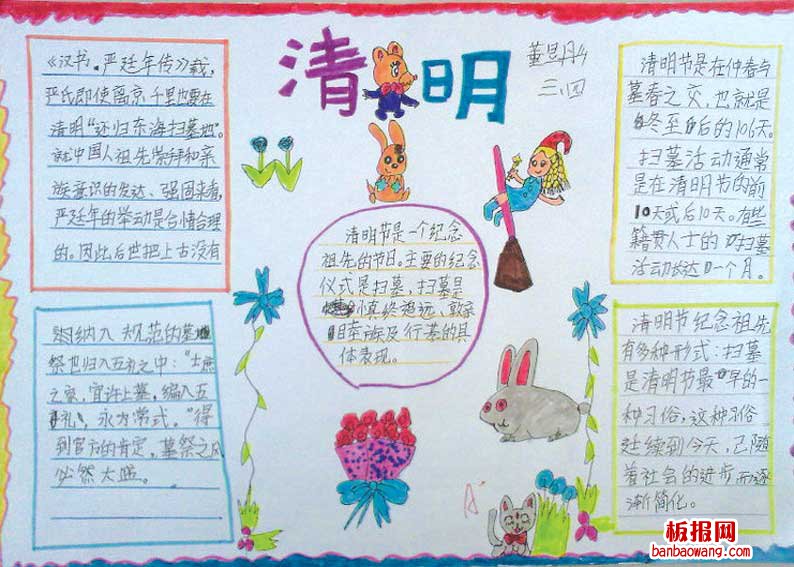 清明
三.四
《汉书.严延年传》载,
严氏即使离京千里也要在
清明"还归东海扫墓地"。
就中国人祖先崇拜和亲
族意识的发达、强固来看,
严廷年的举动是合情合理
的。因此后世把上古没有
纳入 规范的墓
祭也归入五礼之中:"士庶
之家,宜许上墓,编入五
礼,永为常式。"得
到官方的肯定,墓祭之风
必然大盛。
清明节是一个纪念
祖先的节日。主要的纪念
仪式是扫墓,扫墓是
慎终追远、敦亲
睦族及行 的具
体表现。
清明节是在仲春与
暮春之交,也就是
冬至后的106天。
扫墓活动通常
是在清明节的前
10天或后10天。有些
籍贯人士的扫墓
活动长达一个月。
清明节纪念祖先
有多种形式:扫墓
是清明节最早的一
种习俗,这种习俗
延续到今天,已随
着社会的进步而逐
渐简化。
A
板报网
banbaowang.com